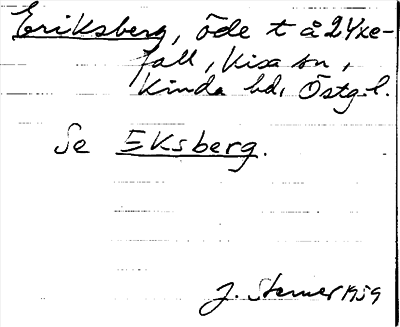 Eriksberg, öde t å 2 Yxe-
fall, Kisa sn,
Kinda hd, Östg.l.
Se Eksberg.
J. Sterner 1959